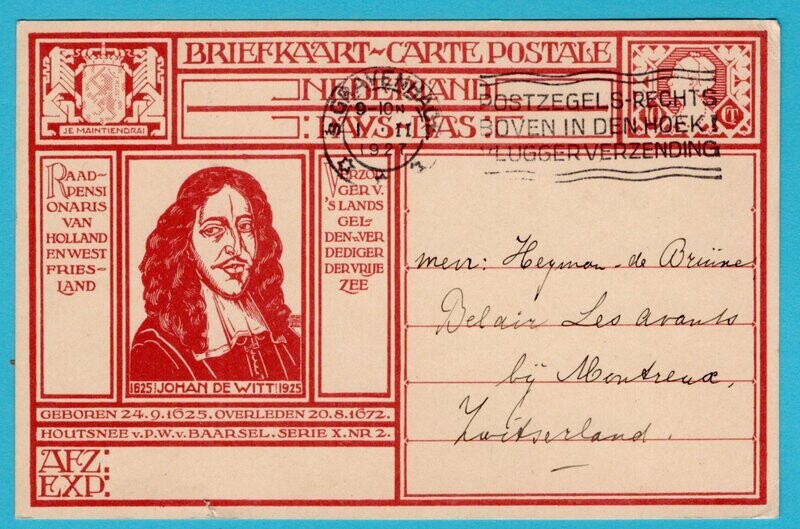 BRIEFKAART~CARTE POSTALE
NEDERLAND
PAYS-BAS
JE MAINTIENDRAI
'S-GRAVENHAGE
9-10 N
1 II
1927
POSTZEGELS-RECHTS
BOVEN IN DEN HOEK!
VLUGGER VERZENDING
RAAD-
PENSI
ONARIS
VAN
HOLLAND
EN WEST
FRIES-
LAND
VERZOR
GER V.
'S LANDS
GEL-
DEN•VER
DEDIGER
DER VRIJE
ZEE
1625 JOHAN DE WITT 1925
GEBOREN 24.9.1625. OVERLEDEN 20.8.1672.
HOUTSNEE v. P.W. v. BAARSEL. SERIE X. NR 2.
AFZ:
EXP:
mevr: Heyman-de Bruïne
Belair Les avants
bij Montreux,
Zwitserland.